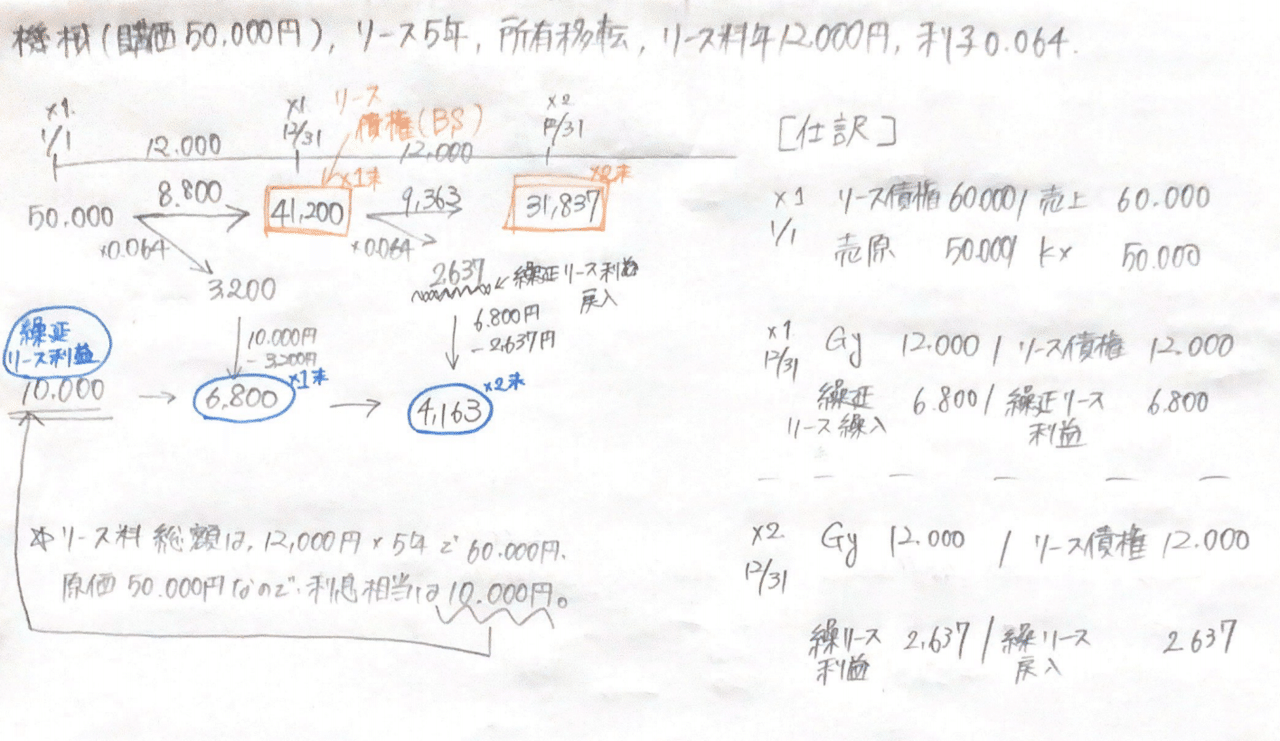 機械(購価50,000円), リース5年, 所有移転, リース料年12,000円, 利子0.064.
×1 1/1
×1 12/31
リース債権(BS)
×2 12/31
12.000
12,000
50.000
8.800
×1末
41,200
9,363
×2末
31,837
×0.064
×0.064
3,200
2637
繰延リース利益戻入
10.000円
- 3,200円
6.800円
- 2,637円
繰延
リース利益
10.000
6,800
×1末
4,163
×2末
*リース料総額は、12,000円×5年で60.000円、
原価50.000円なので、利息相当は10.000円。
[仕訳]
×1 1/1 リース債権 60.000 / 売上 60.000
売原 50.000 / k× 50.000
×1 12/31 Gy 12.000 / リース債権 12.000
繰延リース繰入 6.800 / 繰延リース利益 6.800
×2 12/31 Gy 12.000 / リース債権 12.000
繰リース利益 2,637 / 繰リース戻入 2637